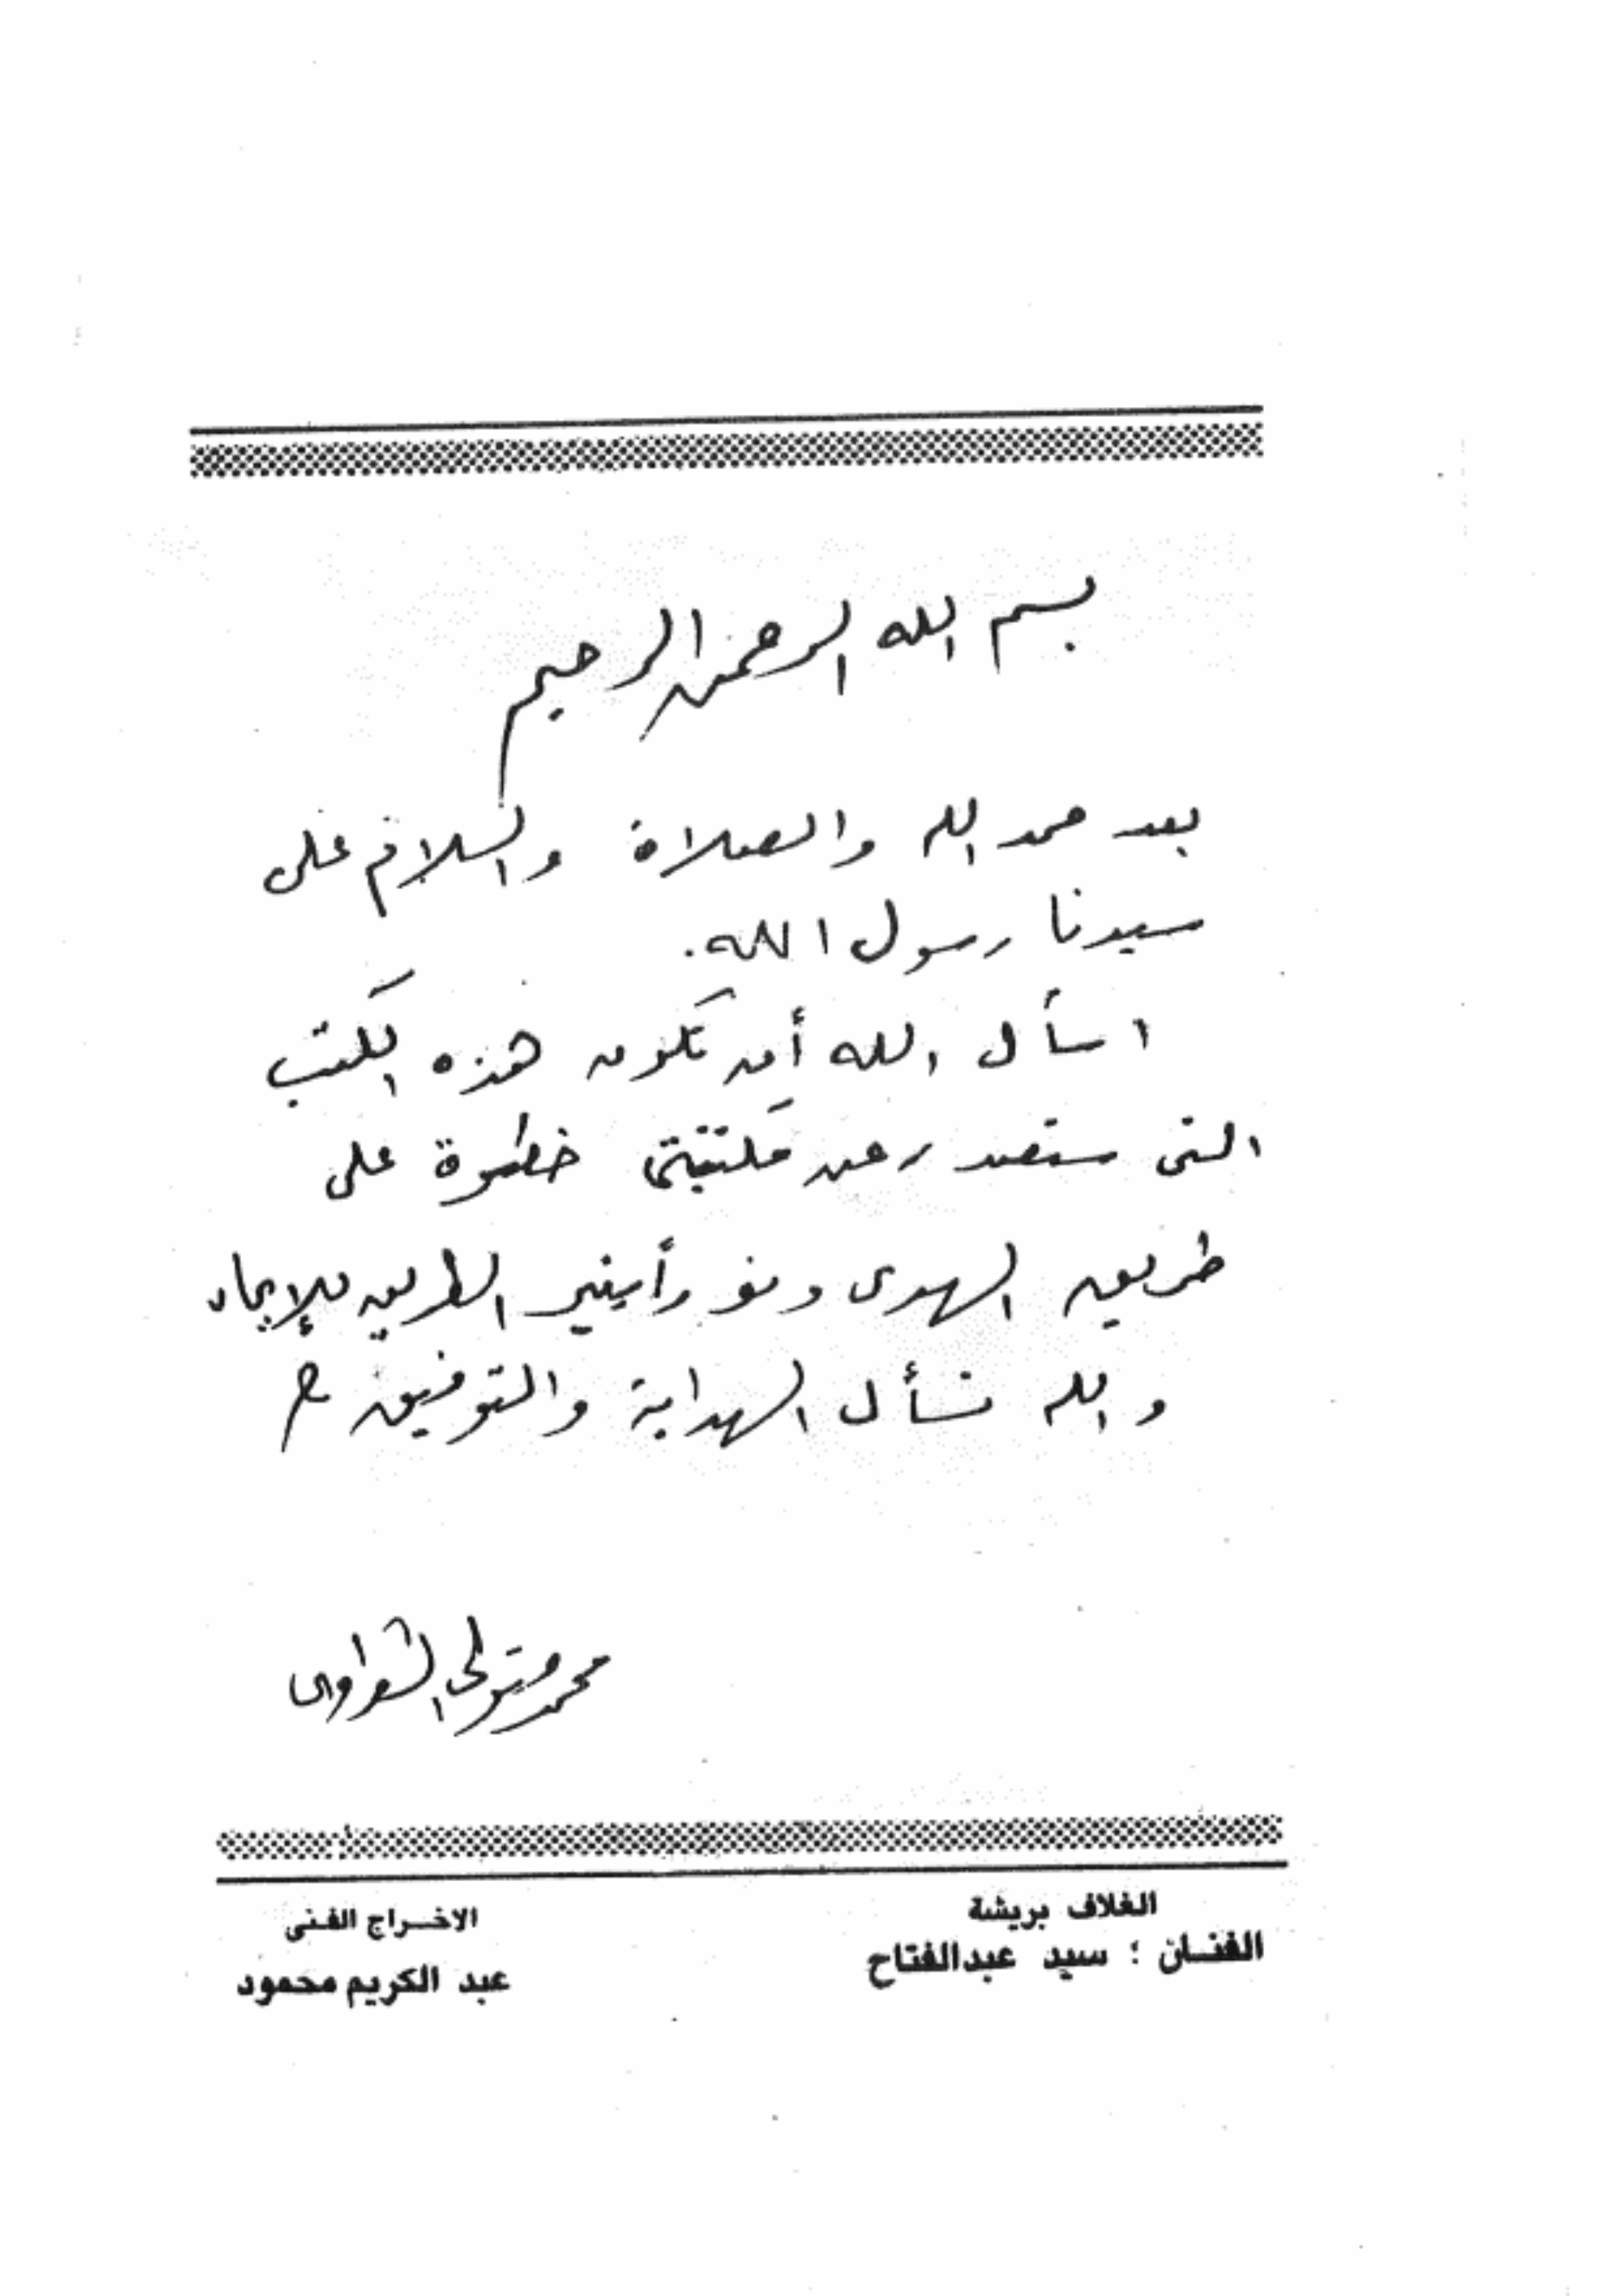 بسم الله الرحمن الرحيم
بعد حمد الله والصلاة والسلام على
سيدنا رسول الله.
اسأل الله أن تكون هذه الكتب
التى ستصدر عن مكتبتى خطوة على
طريق الهدى ونورا ينير الطريق للإيمان
والله نسأل الهداية والتوفيق
محمد متولى الشعراوى
الغلاف بريشة
الفنان : سيد عبدالفتاح
الاخراج الفنى
عبد الكريم محمود